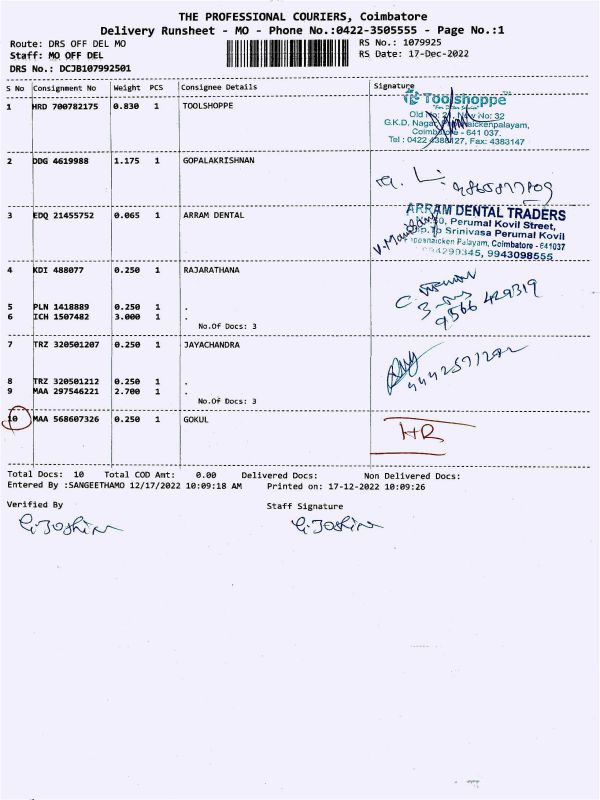 THE PROFESSIONAL COURIERS, Coimbatore
Delivery Runsheet - MO - Phone No.:0422-3505555 - Page No.:1
Route: DRS OFF DEL MO RS No.: 1079925
Staff: MO OFF DEL RS Date: 17-Dec-2022
DRS No.: DCJB107992501
S No Consignment No Weight PCS Consignee Details Signature
1 HRD 700782175 0.830 1 TOOLSHOPPE
Toolshoppe
Old No: New No: 32
G.K.D. Nagar, Pappanaickenpalayam,
Coimbatore - 641 037.
Tel : 0422 4388127, Fax: 4383147
2 DDG 4619988 1.175 1 GOPALAKRISHNAN
3 EDQ 21455752 0.065 1 ARRAM DENTAL
ARRAM DENTAL TRADERS
Perumal Kovil Street,
Opp.To Srinivasa Perumal Kovil
Pappanaicken Palayam, Coimbatore - 641037
4290345, 9943098555
4 KDI 488077 0.250 1 RAJARATHANA
9566 429319
5 PLN 1418889 0.250 1 .
6 ICH 1507482 3.000 1 .
No.Of Docs: 3
7 TRZ 320501207 0.250 1 JAYACHANDRA
8 TRZ 320501212 0.250 1 .
9 MAA 297546221 2.700 1 .
No.Of Docs: 3
10 MAA 568607326 0.250 1 GOKUL
HR
Total Docs: 10 Total COD Amt: 0.00 Delivered Docs: Non Delivered Docs:
Entered By :SANGEETHAMO 12/17/2022 10:09:18 AM Printed on: 17-12-2022 10:09:26
Verified By Staff Signature
G.Joshin G.Joshin